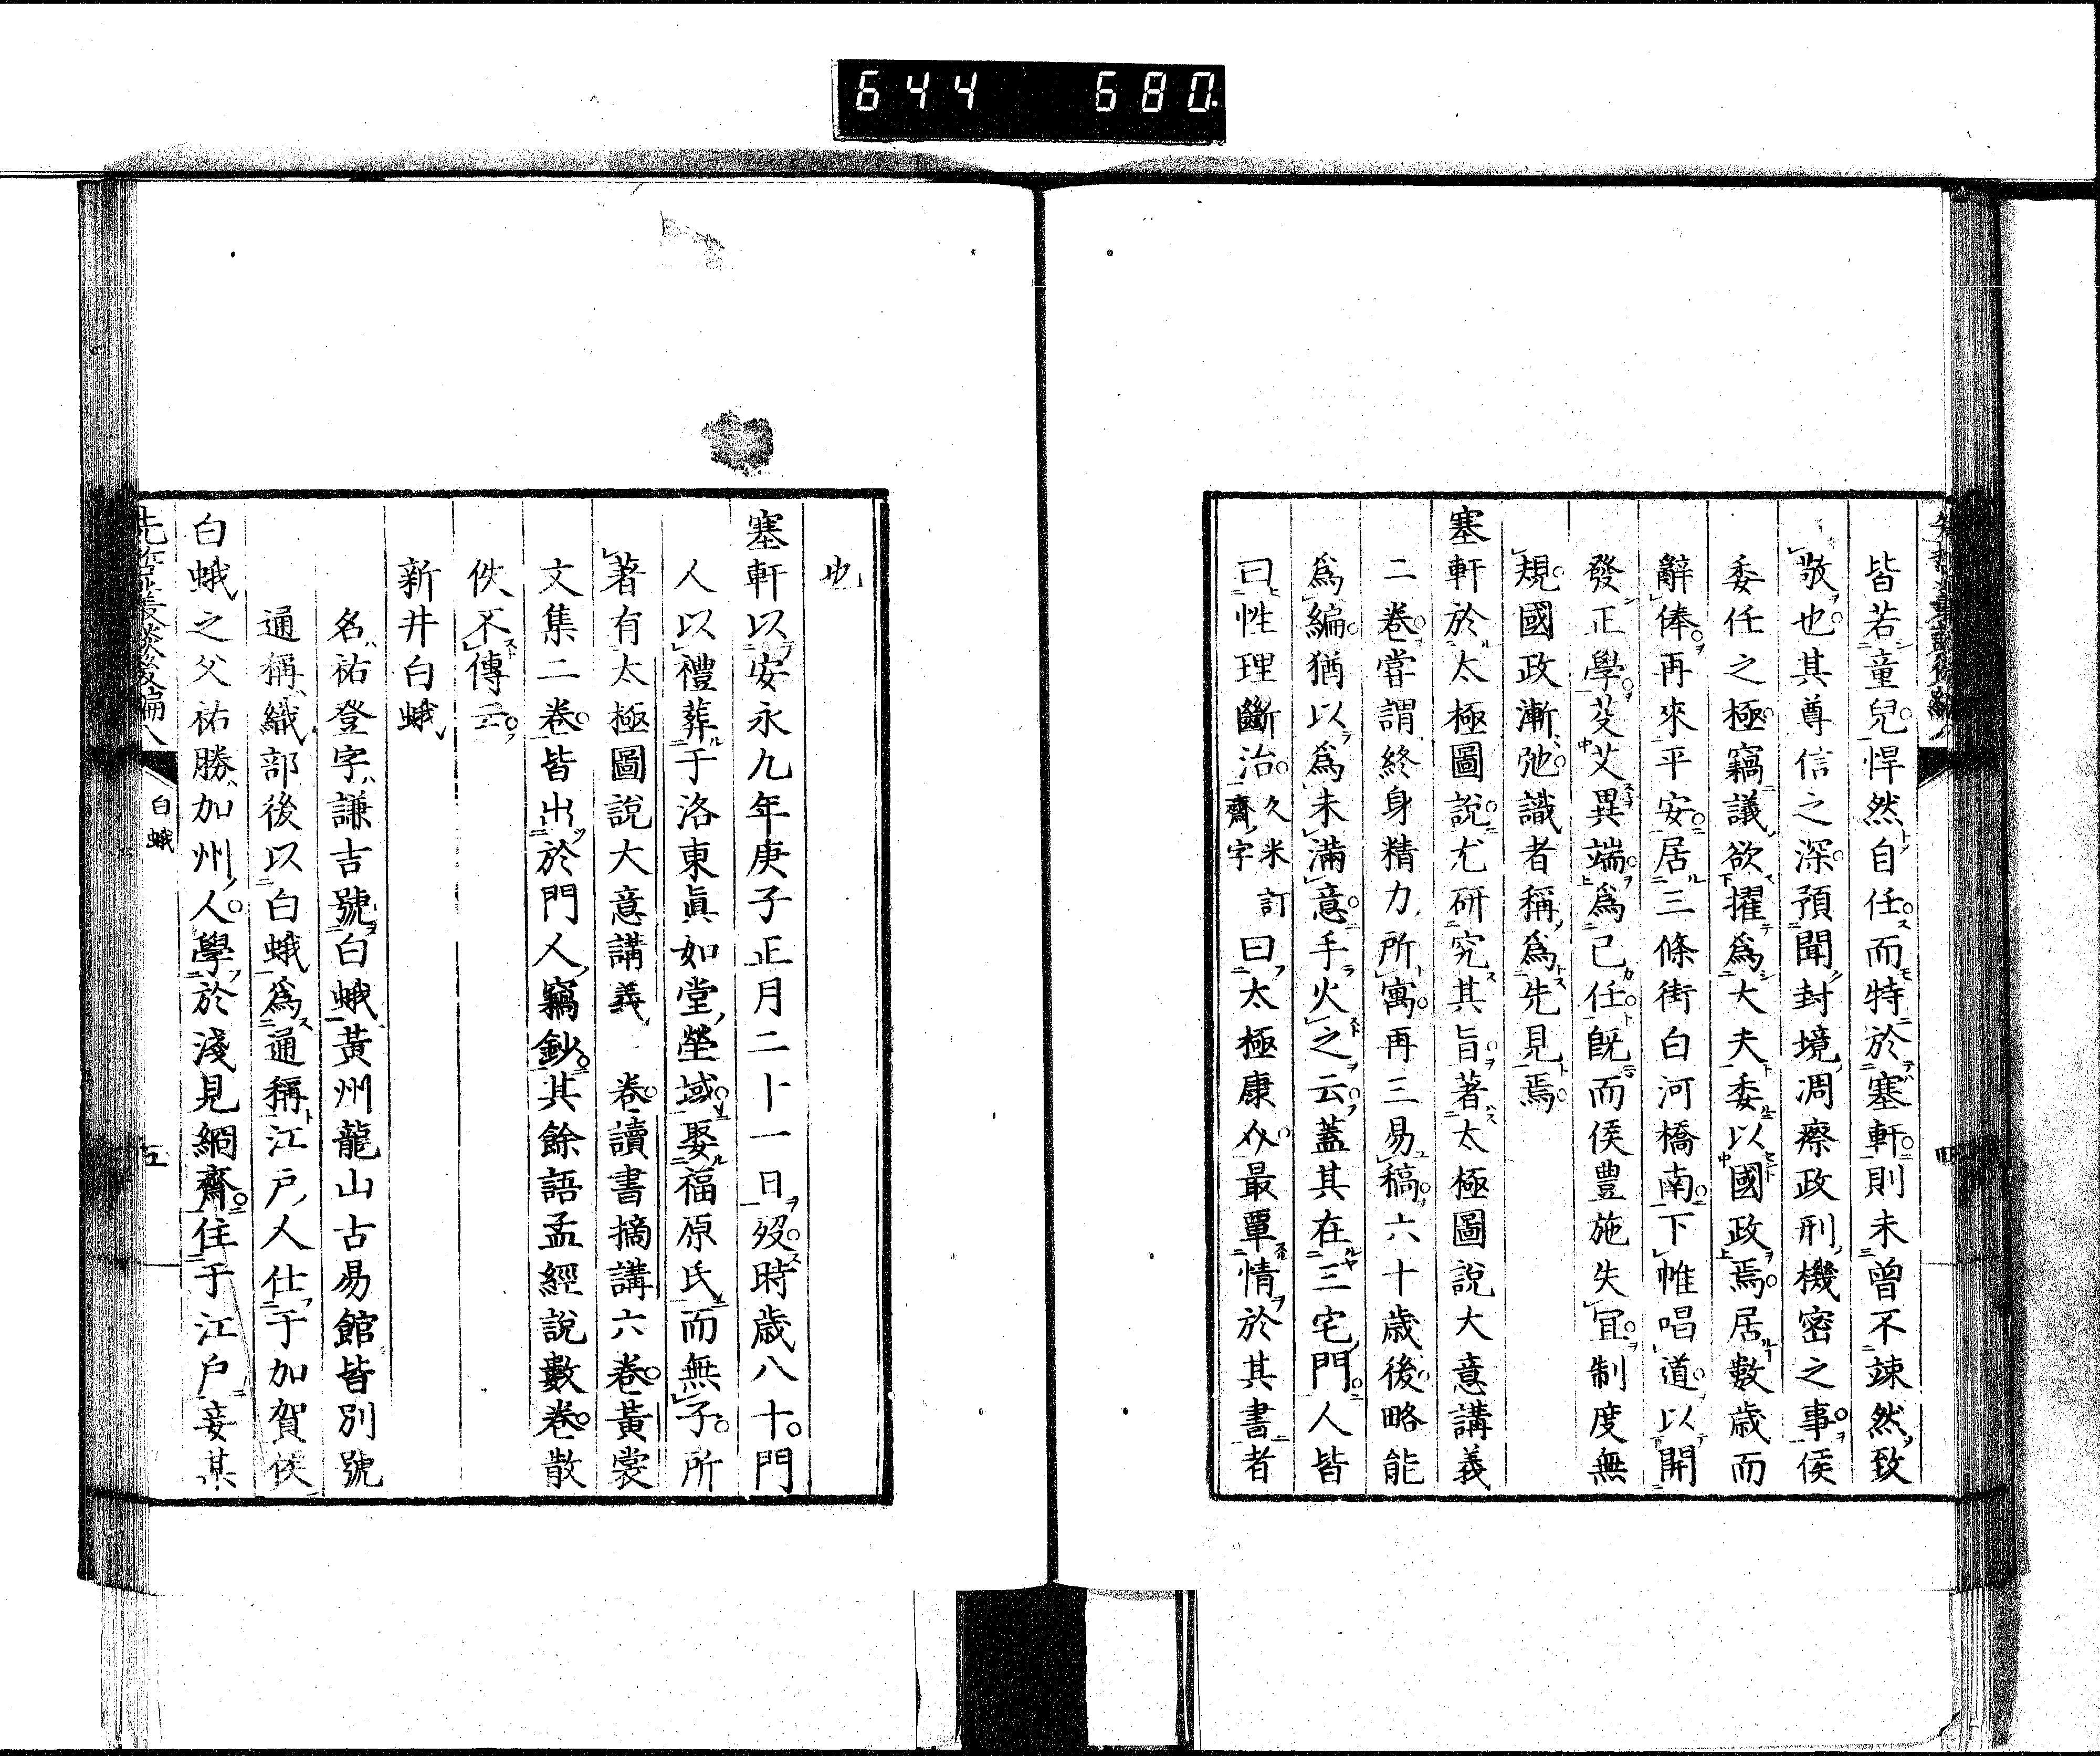 644 680
皆若童兒悍然自任而特於塞軒則未曾不竦然致
敬也其尊信之深預聞封境凋瘵政刑機密之事侯
委任之極竊議欲擢爲大夫委以國政焉居數歲而
辭俸再來平安居三條街白河橋南下帷唱道以開
發正學芟艾異端爲己任既而侯豊施失宜制度無
規國政漸弛識者稱爲先見焉
塞軒於太極圖說尤研究其旨著太極圖說大意講義
二卷嘗謂終身精力所寓再三易稿六十歲後略能
爲編猶以爲未滿意手火之云蓋其在三宅門人皆
曰性理斷治久米訂齋字曰太極康介最覃情於其書者
也
塞軒以安永九年庚子正月二十一日歿時歲八十門
人以禮葬于洛東眞如堂塋域娶福原氏而無子所
著有太極圖說大意講義 卷讀書摘講六卷黃裳
文集二卷皆出於門人竊鈔其餘語孟經說數卷散
佚不傳云
新井白蛾
名祐登字謙吉號白蛾黃州龍山古易館皆別號
通稱織部後以白蛾爲通稱江戶人仕于加賀侯
白蛾之父祐勝加州人學於淺見絅齋住于江戶妾某
先哲叢談後編八
白蛾
五